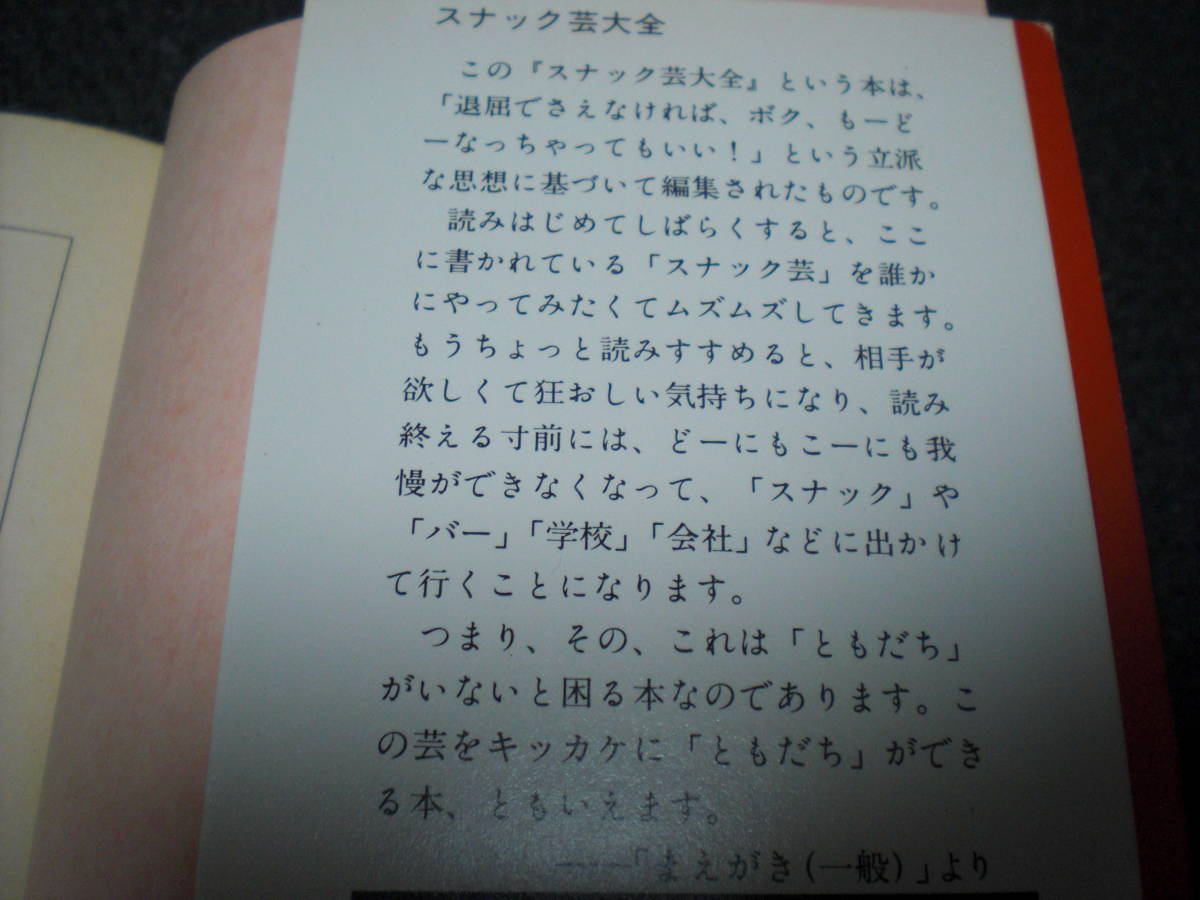 スナック芸大全
この『スナック芸大全』という本は、
「退屈でさえなければ、ボク、もーど
ーなっちゃってもいい！」という立派
な思想に基づいて編集されたものです。
読みはじめてしばらくすると、ここ
に書かれている「スナック芸」を誰か
にやってみたくてムズムズしてきます。
もうちょっと読みすすめると、相手が
欲しくて狂おしい気持ちになり、読み
終える寸前には、どーにもこーにも我
慢ができなくなって、「スナック」や
「バー」「学校」「会社」などに出かけ
て行くことになります。
つまり、その、これは「ともだち」
がいないと困る本なのであります。こ
の芸をキッカケに「ともだち」ができ
る本、ともいえます。
——「まえがき(一般)」より